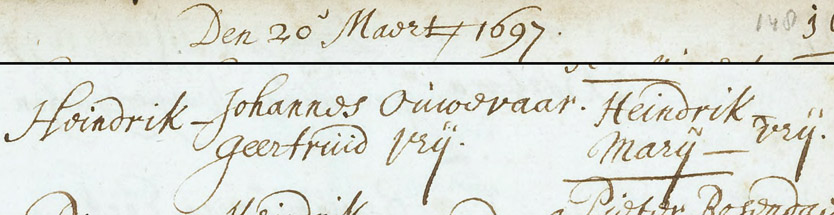 Den 20s Maert 1697.
148
Heindrik - Johannes Ouwevaar. Heindrik
Geertruid Vrij. Marij - Vrij.
Heindrik Pieter Rosenda